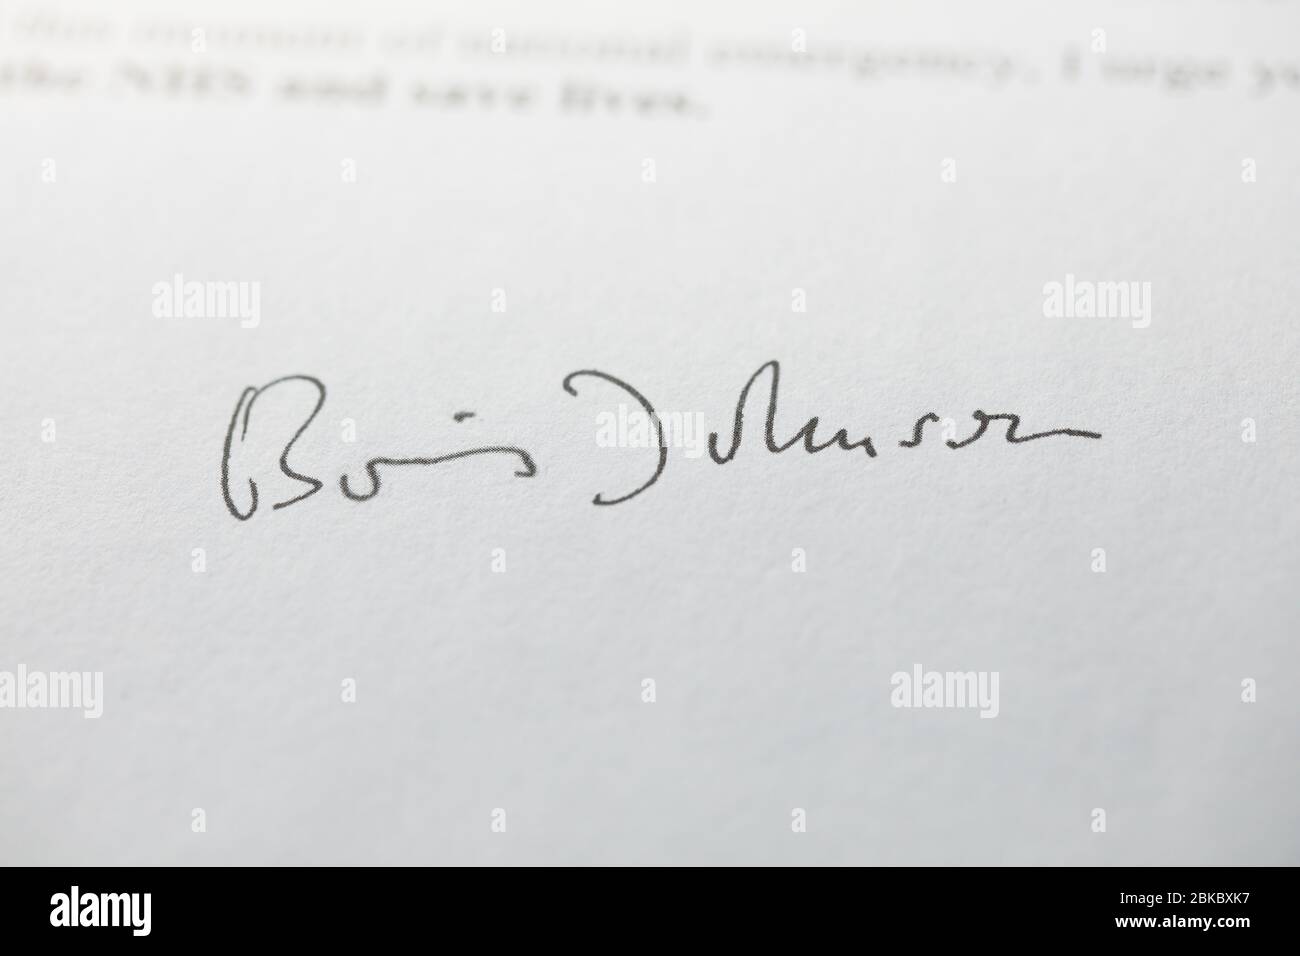 this moment of national emergency, I urge yo
the NHS and save lives.
Boris Johnson
alamy
alamy
alamy
alamy
alamy
alamy
Image ID: 2BKBXK7
www.alamy.com